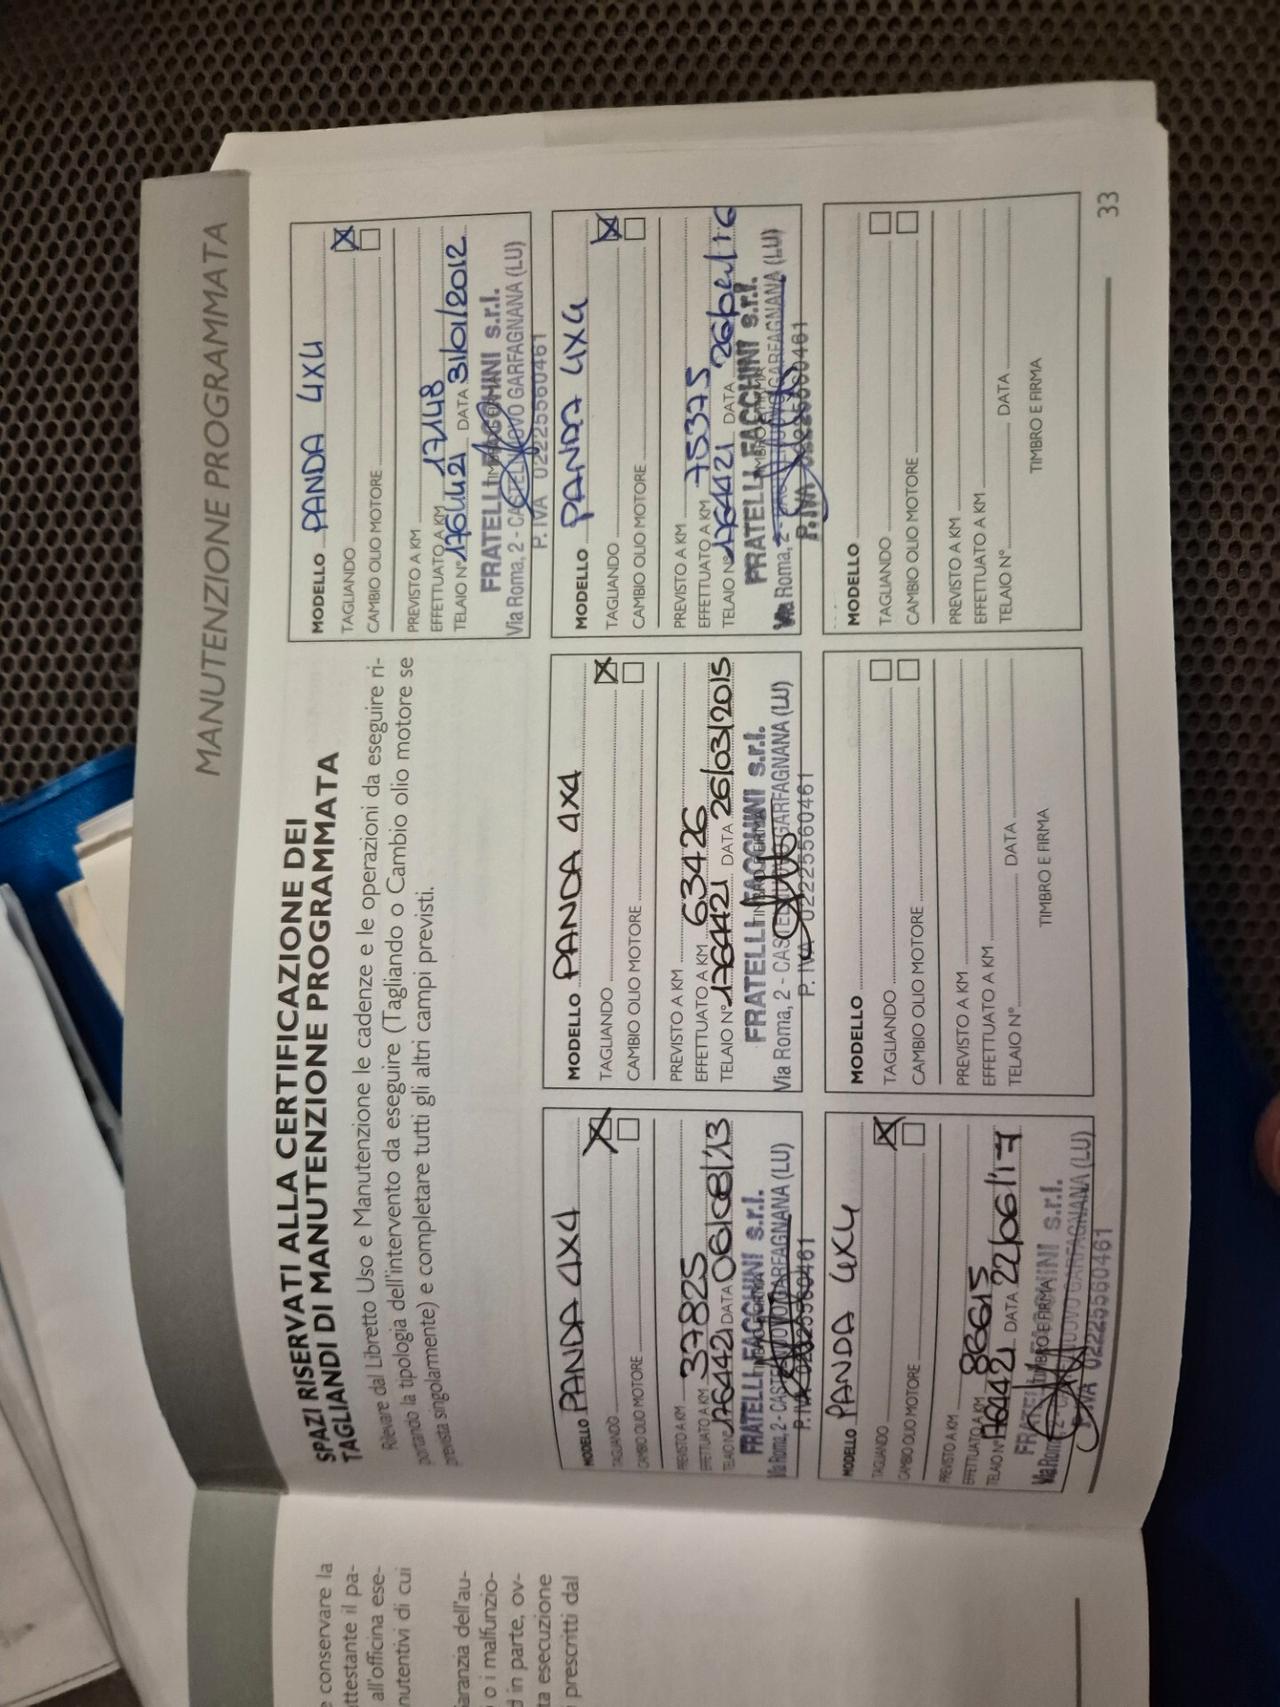 MANUTENZIONE PROGRAMMATA
SPAZI RISERVATI ALLA CERTIFICAZIONE DEI
TAGLIANDI DI MANUTENZIONE PROGRAMMATA
Rilevare dal Libretto Uso e Manutenzione le cadenze e le operazioni da eseguire ri-
portando la tipologia dell'intervento da eseguire (Tagliando o Cambio olio motore se
prevista singolarmente) e completare tutti gli altri campi previsti.
MODELLO PANDA 4X4
TAGLIANDO
CAMBIO OLIO MOTORE
PREVISTO A KM
EFFETTUATO A KM 17148
TELAIO N° 1764421 DATA 31/01/2012
FRATELLI FACCHINI s.r.l.
Via Roma, 2 - CASTELNUOVO GARFAGNANA (LU)
P. IVA 02225560461
MODELLO PANDA 4X4
TAGLIANDO
CAMBIO OLIO MOTORE
PREVISTO A KM
EFFETTUATO A KM 37825
TELAIO N° 1764421 DATA 06/08/13
FRATELLI FACCHINI s.r.l.
Via Roma, 2 - CASTELNUOVO GARFAGNANA (LU)
P. IVA 02225560461
MODELLO PANDA 4X4
TAGLIANDO
CAMBIO OLIO MOTORE
PREVISTO A KM
EFFETTUATO A KM 63426
TELAIO N° 1764421 DATA 26/03/2015
FRATELLI FACCHINI s.r.l.
Via Roma, 2 - CASTELNUOVO GARFAGNANA (LU)
P. IVA 02225560461
MODELLO PANDA 4X4
TAGLIANDO
CAMBIO OLIO MOTORE
PREVISTO A KM
EFFETTUATO A KM 75375
TELAIO N° 1764421 DATA
FRATELLI FACCHINI s.r.l.
Via Roma, 2 - CASTELNUOVO GARFAGNANA (LU)
P. IVA 02225560461
MODELLO PANDA 4X4
TAGLIANDO
CAMBIO OLIO MOTORE
PREVISTO A KM
EFFETTUATO A KM 86615
TELAIO N° 1764421 DATA 22/06/17
TIMBRO E FIRMA
FRATELLI FACCHINI s.r.l.
Via Roma, 2 - CASTELNUOVO GARFAGNANA (LU)
P. IVA 02225560461
MODELLO
TAGLIANDO
CAMBIO OLIO MOTORE
PREVISTO A KM
EFFETTUATO A KM
TELAIO N° DATA
TIMBRO E FIRMA
MODELLO
TAGLIANDO
CAMBIO OLIO MOTORE
PREVISTO A KM
EFFETTUATO A KM
TELAIO N° DATA
TIMBRO E FIRMA
33
conservare la
attestante il pa-
all'officina ese-
nutentivi di cui
garanzia dell'au-
o i malfunzio-
d in parte, ov-
ta esecuzione
prescritti dal